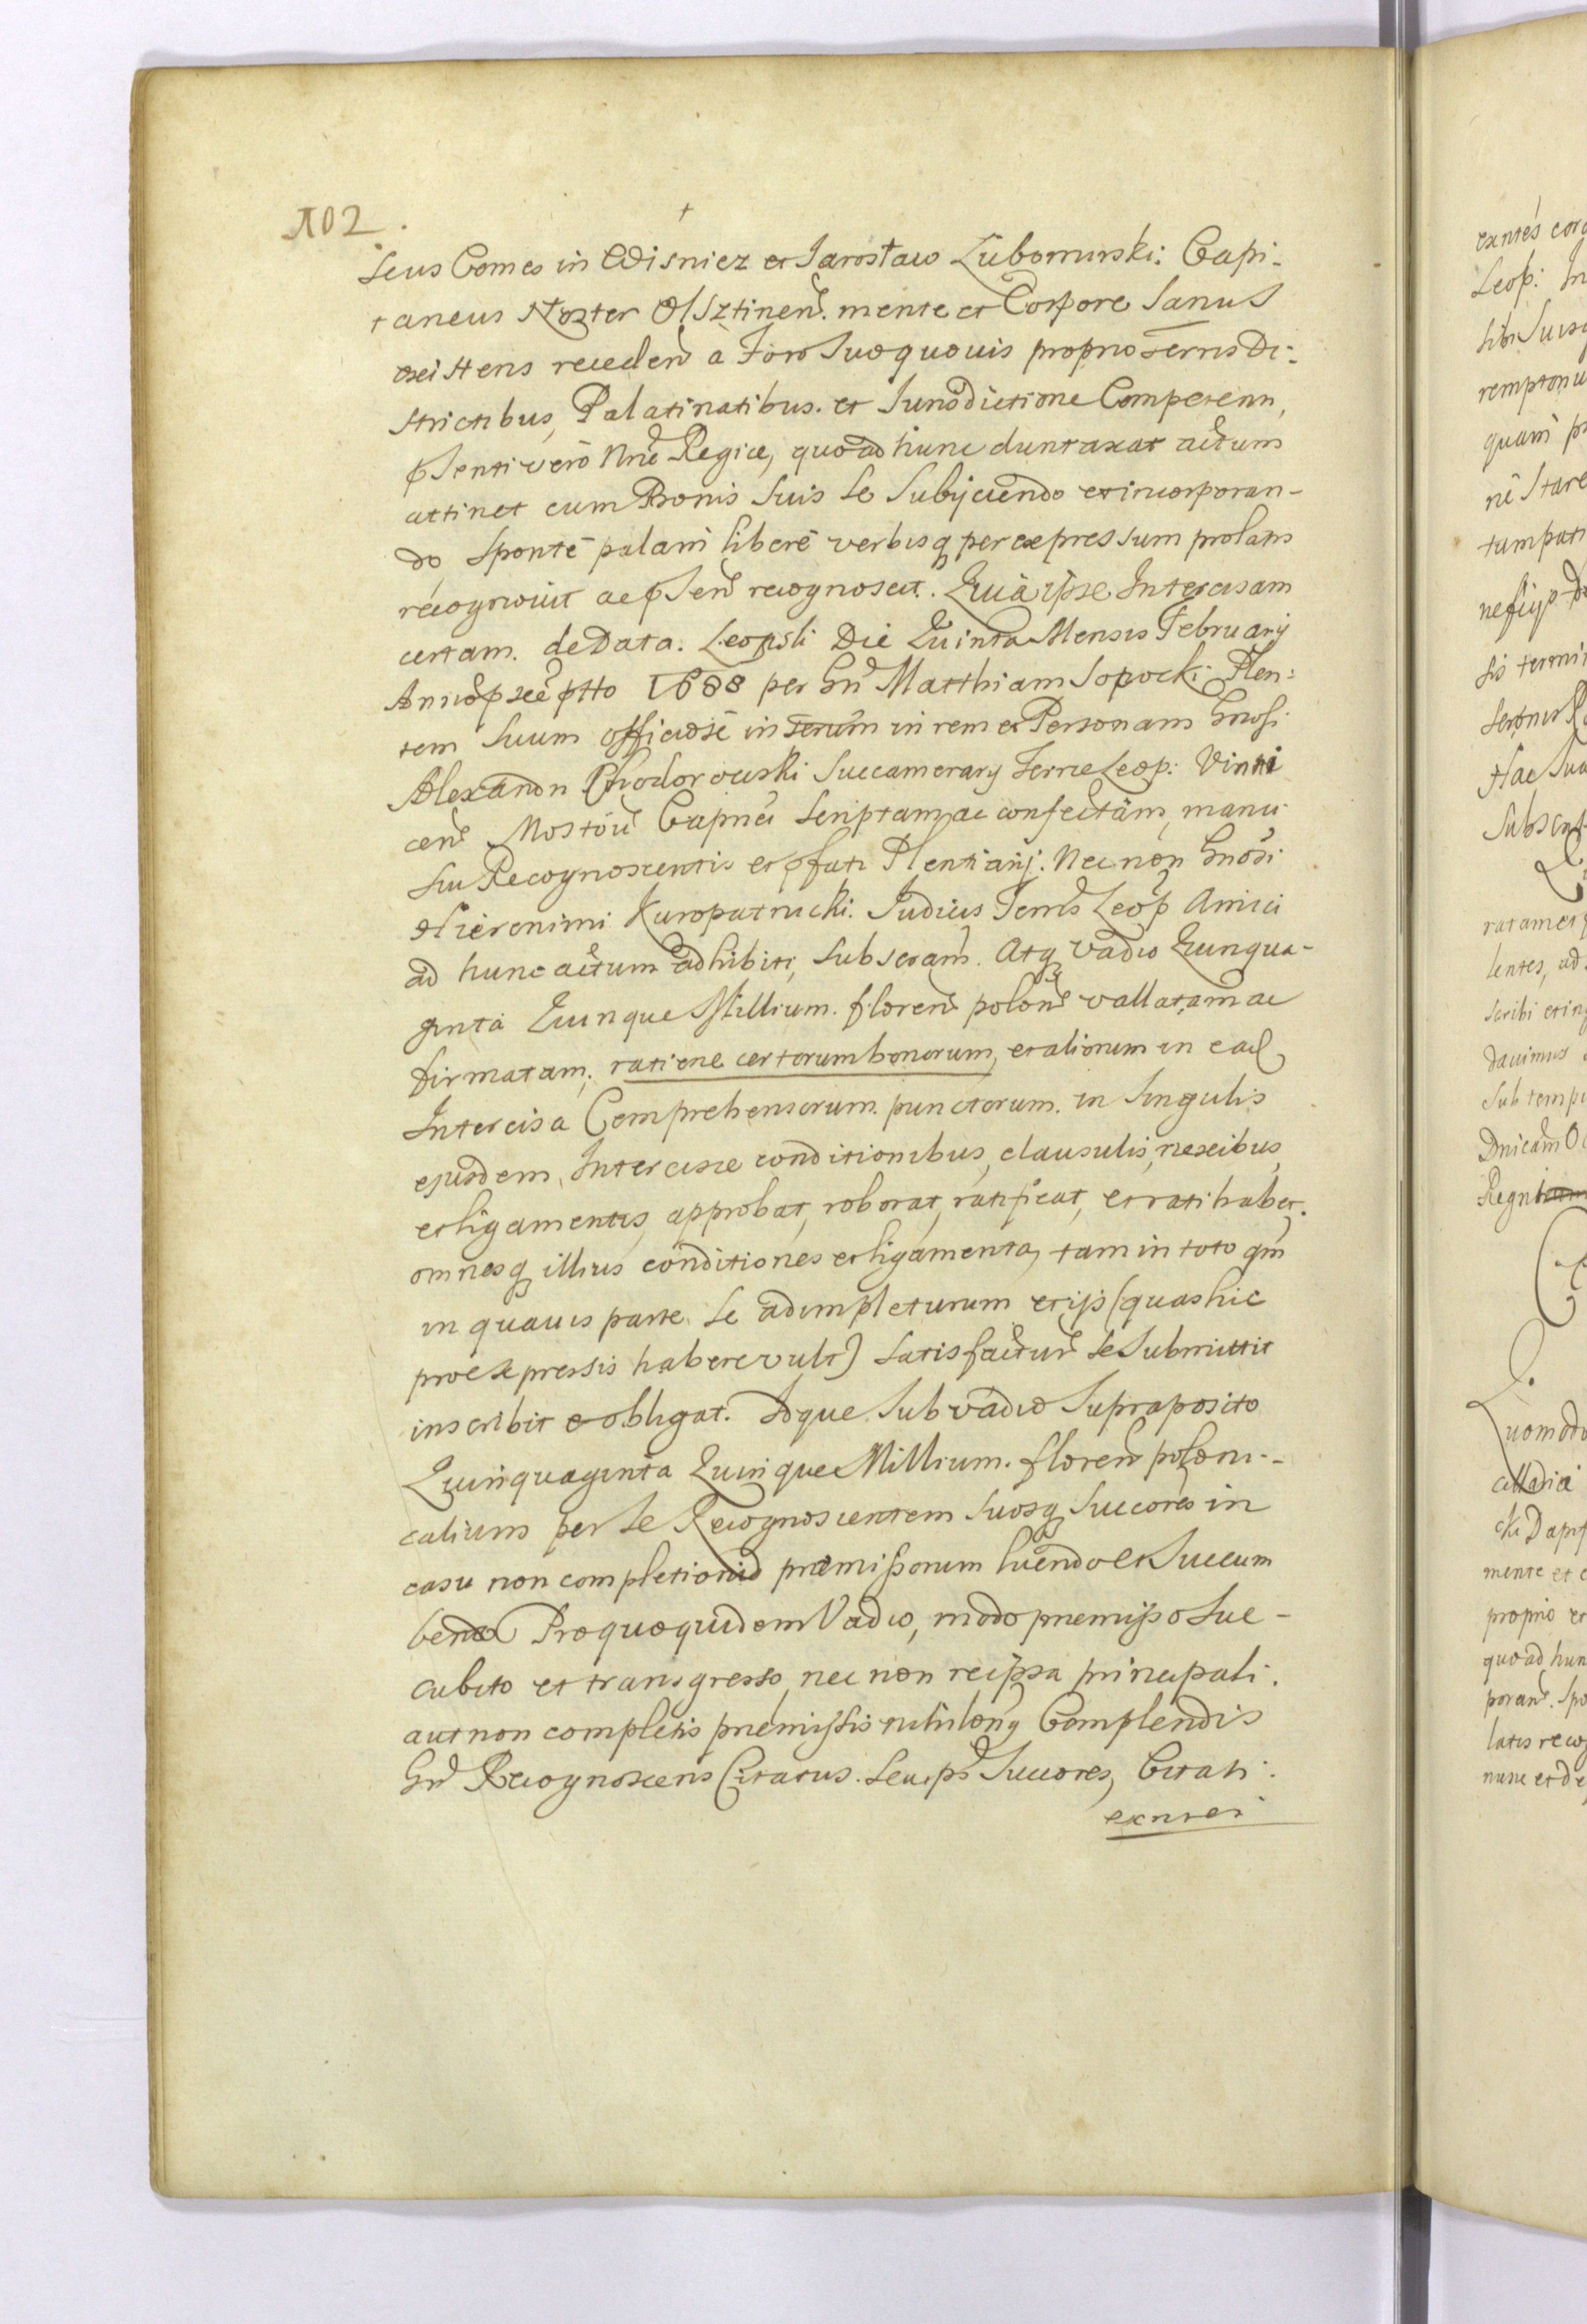 102.
seus Comes in Wisnicz et Jarosław Lubomirski: Capi-
taneus Noster Olsztinen. mente et Corpore Sanus
existens receden a Foro suo quovis proprio terris Di-
strictibus, Palatinatibus. et Jurisdictione Competenti,
psenti vero Nrae Regiae, quoad hunc duntaxat actum
attinet cum Bonis suis se subijciendo et incorporan-
do sponte palam libere verbisq per expressum prolatis
recognovit ac psen recognoscit. Quia ipse Intercisam
certam. de Data. Leopoli Die Quinta Mensis February
Anno pntto 1688 per Gn Matthiam Sopocki Plen:
tem suum officiose in rem et Personam Gnosi
Alexandri Chodorowski Succamerary Terrae Leop: Vinni
cen Mostow Capnei scriptam ac confectam, manu
sui Recognoscentis et pfati Plentiarij. Nec non Gnosi
Hieronimi Kuropatnicki. Judicis Terris Leop Amici
ad hunc actum adhibiti, subscram. Atq vadio Quinqua-
ginta Quinque Millium. floren polon vallatam ac
firmatam, ratione certorum bonorum, et aliorum in ead
Intercisa Comprehensorum. punctorum. in singulis
ejusdem Intercisae conditionibus, clausulis, nexibus,
et ligamentis, approbat, roborat, ratificat, et rati habet.
omnesq illius conditiones et ligamenta, tam in toto qm
in quavis parte. se adimpleturum et ijs (quas hic
pro expressis habere vult) satisfactur se submittit
inscribit et obligat. Idque sub vadio supraposito
Quinquaginta Quinque Millium. floren poloni-
calium per se Recognoscentem suosq succores in
casu non completionis praemissorum luendo et succum
bendo Pro quo quidem Vadio, modo praemisso suc-
cubito et transgresso, nec non re ipsa principali.
aut non completis praemissis Complendis
Gn Recognoscens Citatus. seu ps succores, Citati.
exntes

exntes
Leop: In
sibi suisq
quam
ne stare
sis termi
Hac sua
lentes, ad
scribi et in
davimus
sub temp
Dnicam
Regni
Quomodo
cki Dapif
mente et c
proprio et
quoad hun
poran. spo
latis recog
nunc et de